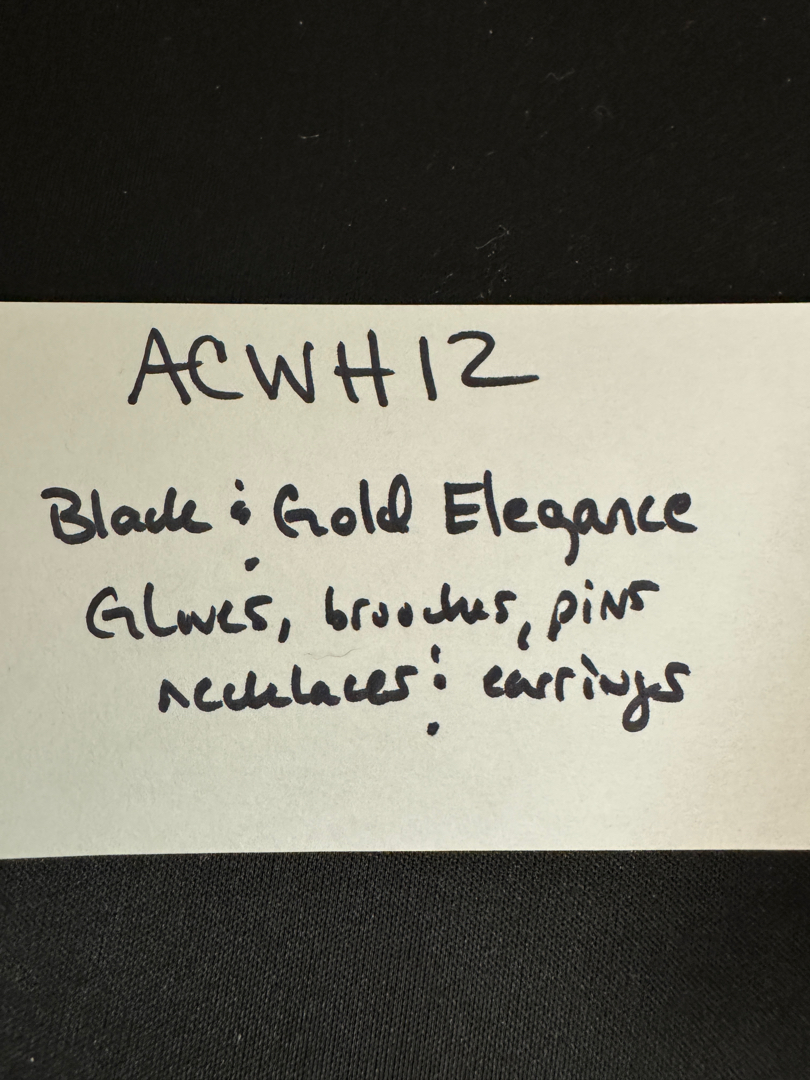 ACWH12
Black & Gold Elegance
Gloves, brooches, pins
necklaces & earrings